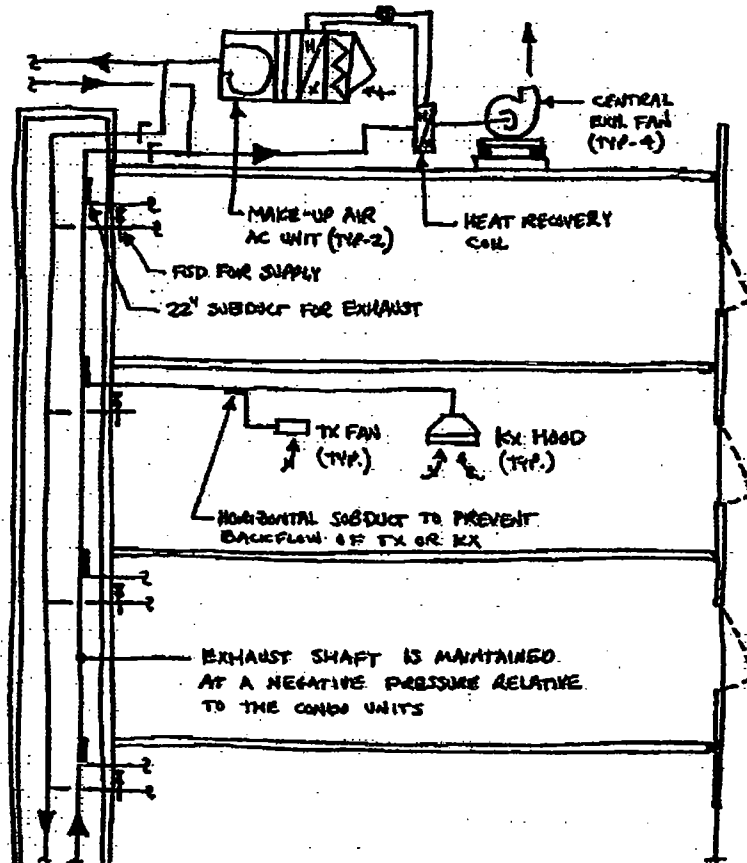 CENTRAL
EXH. FAN
(TYP-4)
MAKE-UP AIR
AC UNIT (TYP-2)
HEAT RECOVERY
COIL
FSD FOR SUPPLY
22" SUBDUCT FOR EXHAUST
TX FAN
(TYP.)
KX HOOD
(TYP.)
HORIZONTAL SUBDUCT TO PREVENT
BACKFLOW OF TX OR KX
EXHAUST SHAFT IS MAINTAINED
AT A NEGATIVE PRESSURE RELATIVE
TO THE CONDO UNITS